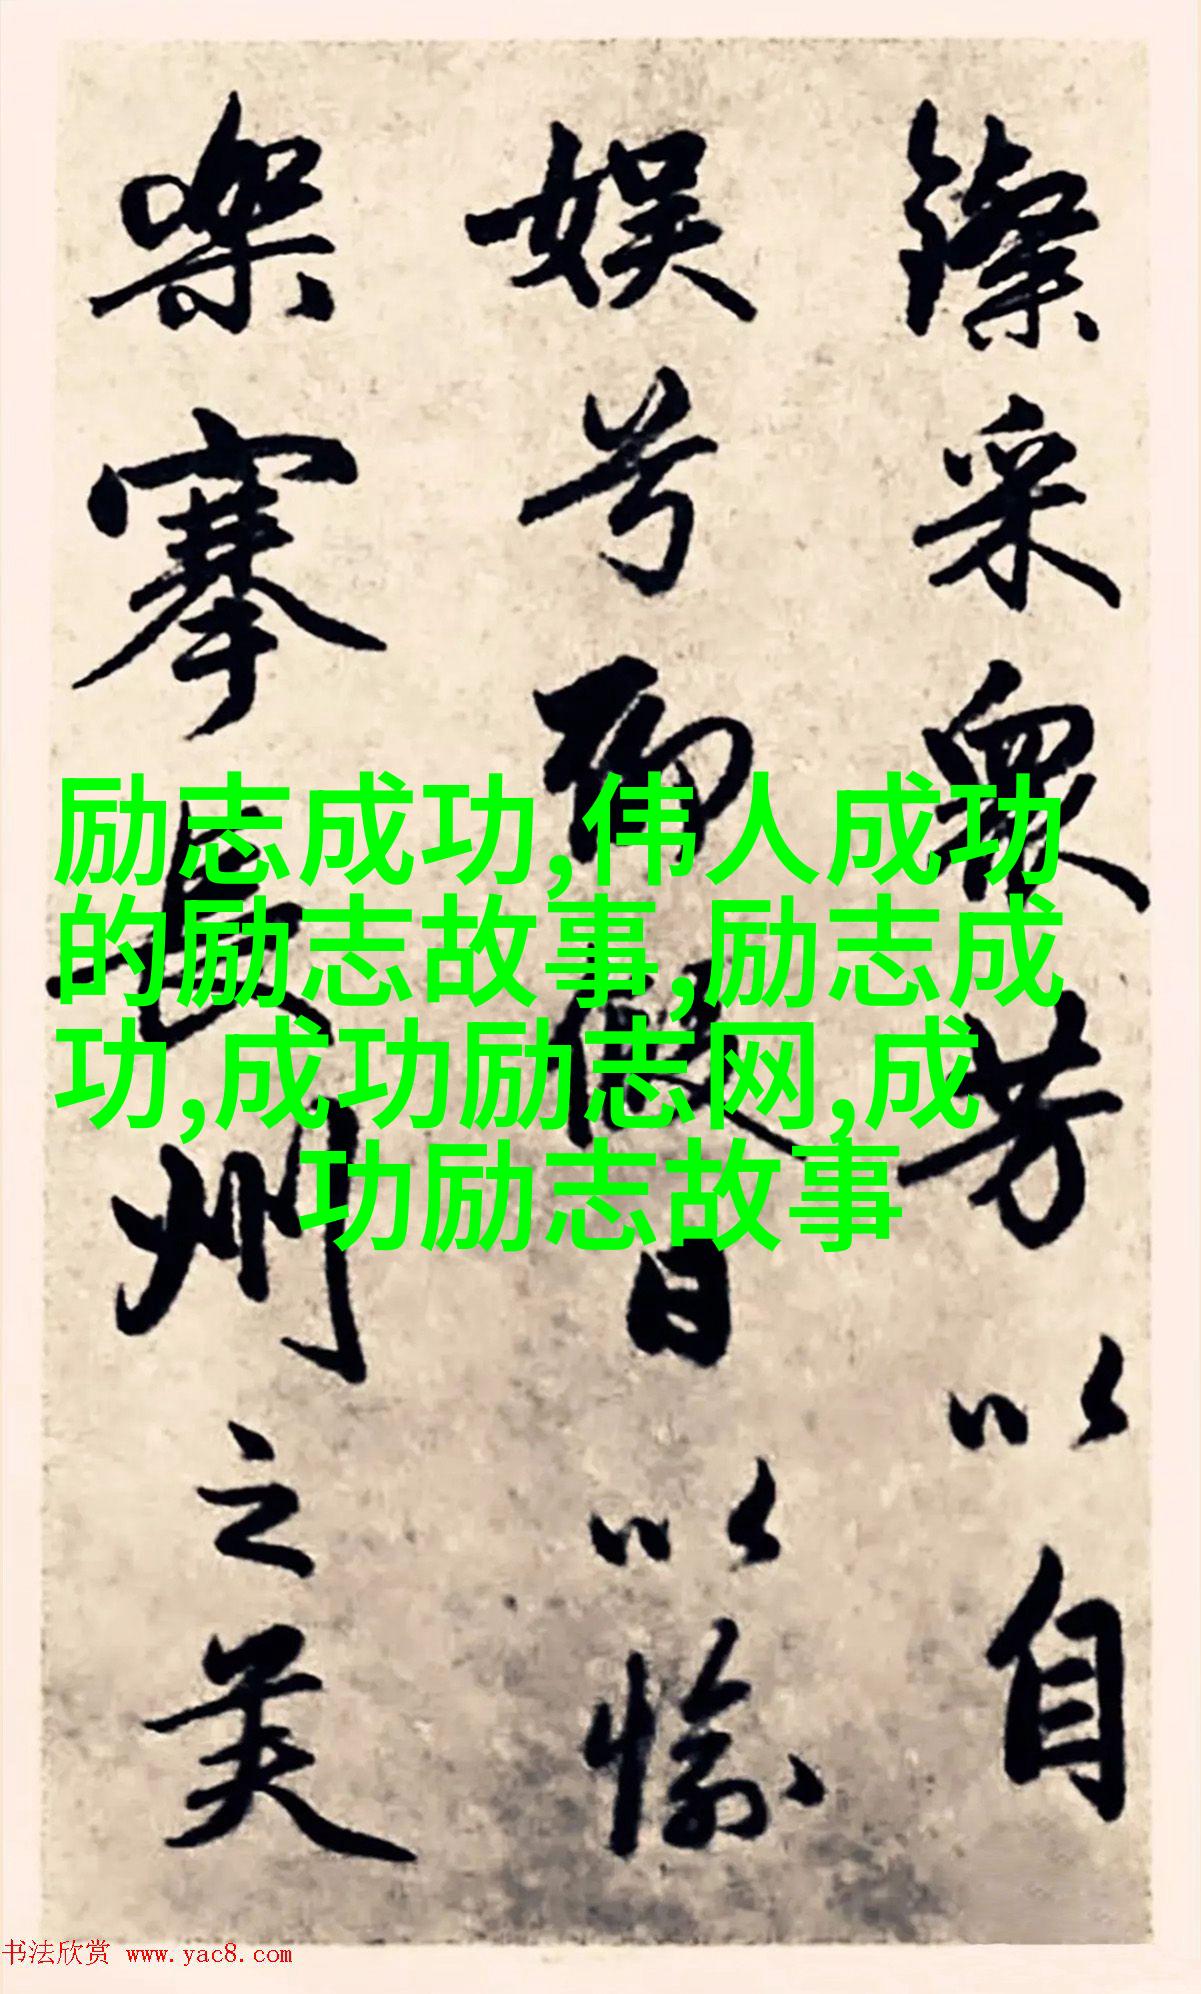 采眾芳以自
娱兮而假日以愉
樂搴長州之美
励志成功,伟人成功
的励志故事,励志成
功,成功励志网,成
功励志故事
书法欣赏 www.yac8.com